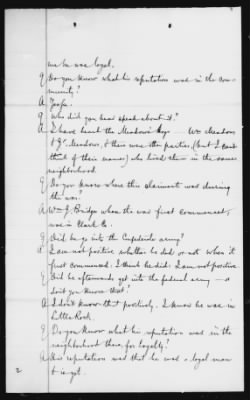 me he was loyal.
Q Do you know what his reputation was in the com-
munity?
A Yes.
Q Who did you hear speak about it?
A I have heard the Meadows boys Wm Meadows
& J. Meadows, & there was other parties, (but I can't
think of their names) who lived there in the same
neighborhood.
Q Do you know where this claimant was during
the war?
A Wm J. Bridge when the war first commenced,
was in Clark Co.
Q Did he go into the Confederate army?
A I am not positive whether he did or not when it
first commenced. I think he did: I am not positive
Q Did he afterwards get into the federal army — or
don't you know that?
A I don't know that positively. I know he was in
Little Rock.
Q Do you know what his reputation was in the
neighborhood there, for loyalty?
A His reputation was that he was a loyal man
& is yet.
2